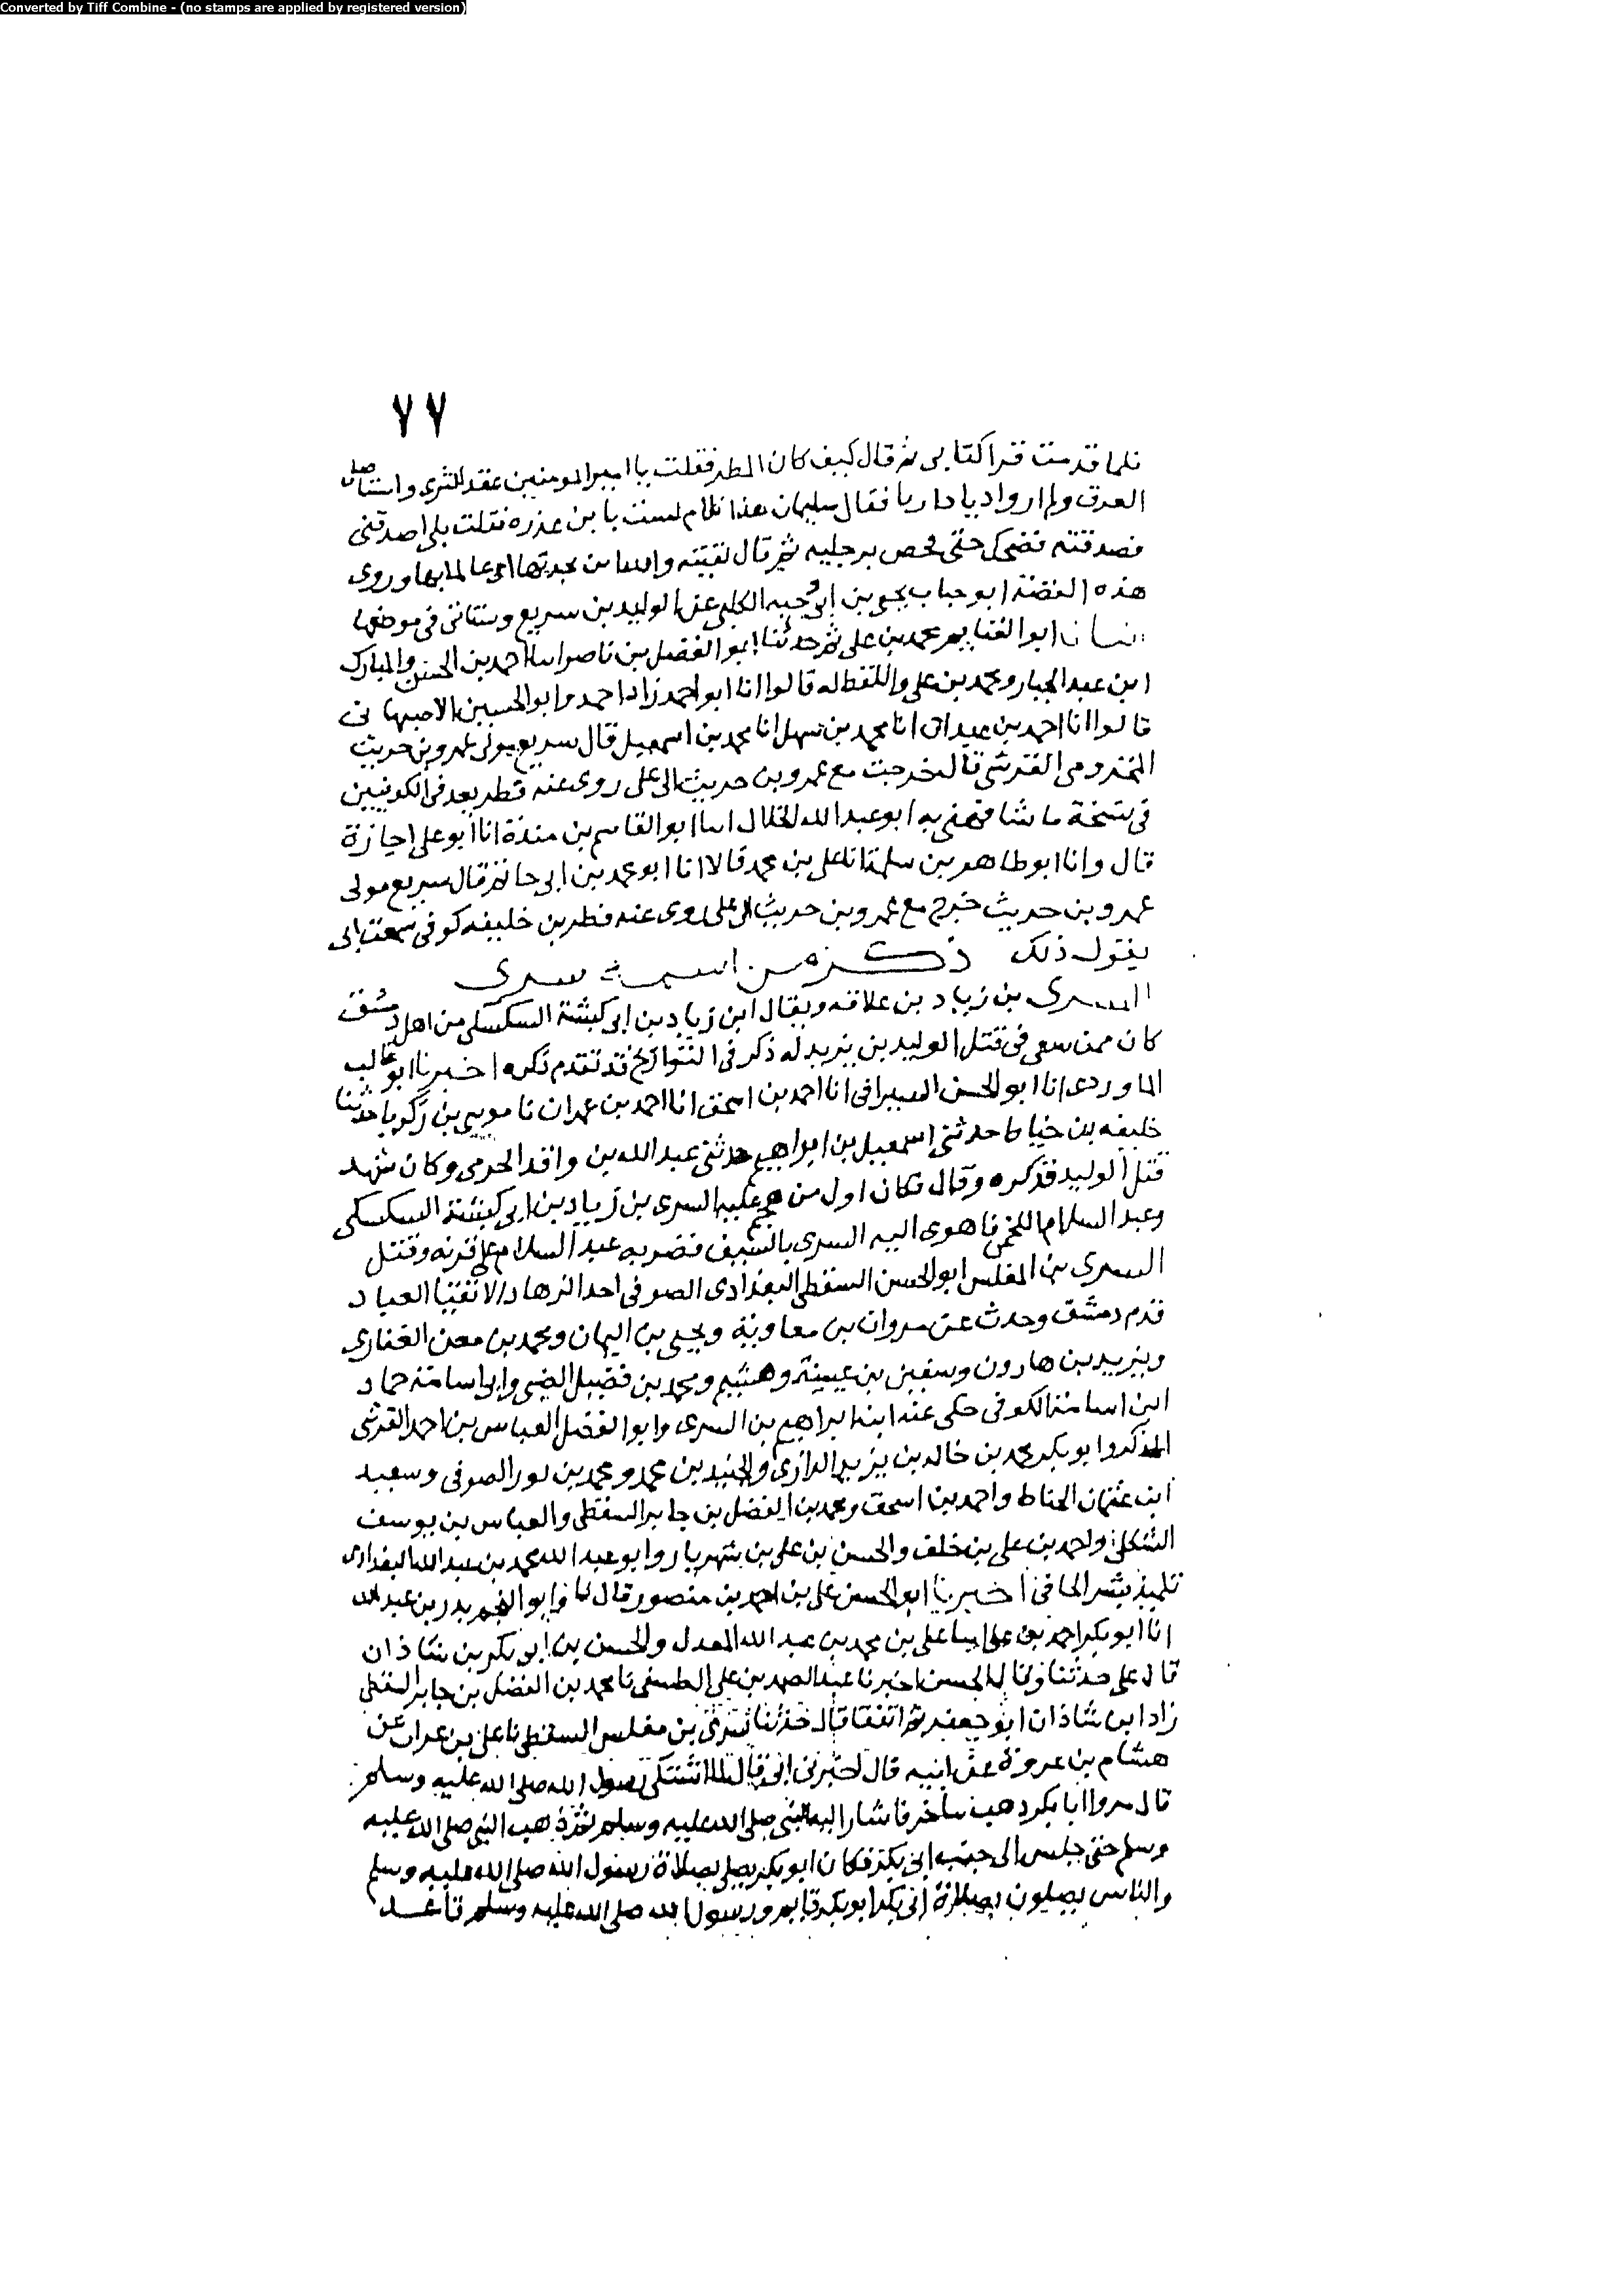 Converted by Tiff Combine - (no stamps are applied by registered version)
٧٧
فلما قدمت قرا كتابى ثم قال كيف كان المطر فقلت يا امير المومنين عقد الثرى واستاصل
العرق ولم ار واديا داريا فقال سليمان هذا كلام لست با بن عذره فقلت بلى اصدقنى
فصدقته فضحك حتى فحص برجليه ثم قال لقيته والله ابن بجدتها اى عالما بها وروى
هذه القصة ابو جناب يحيى بن ابى حيه الكلبى عن الوليد بن سريع وستاتى فى موضعها
انبانا ابو الغنايم محمد بن على ثم حدثنا ابو الفضل بن ناصر انا احمد بن الحسن والمبارك
ابن عبد الجبار ومحمد بن على واللفظ له قالوا انا ابو احمد زاد احمد وابو الحسين الاصبهانى
قالوا انا احمد بن عبدان انا محمد بن سهل انا محمد بن اسمعيل قال سريع مولى عمرو بن حريث
المخزومى القرشى قال خرجت مع عمرو بن حريث الى على روى عنه فطر يعد فى الكوفيين
فى نسخة ما شافهنى به ابو عبد الله الخلال انا ابو القاسم بن مندة انا ابو على اجازة
قال وانا ابو طاهر بن سلمة انا على بن محمد قالا انا ابو محمد بن ابى حاتم قال سريع مولى
عمرو بن حريث خرج مع عمرو بن حريث الى على روى عنه فطر بن خليفه كوفى سمعت ابى
يقول ذلك ذكر من اسمه سرى
السرى بن زياد بن علاقه ويقال ابن زياد بن ابى كبشة السكسكى من اهل دمشق
كان ممن سعى فى قتل الوليد بن يزيد له ذكر فى التواريخ قد تقدم ذكره اخبرنا ابو غالب
الماوردى انا ابو الحسن السيرافى انا احمد بن اسحق انا احمد بن عمران نا موسى بن زكريا حدثنا
خليفه بن خياط حدثنى اسمعيل بن ابراهيم حدثنى عبد الله بن واقد الجرمى وكان شهد
قتل الوليد فذكره وقال فكان اول من هجم عليه السرى بن زياد بن ابى كبشة السكسكى
وعبد السلام اللخمى فاهوى اليه السرى بالسيف فضربه عبد السلام على قرنه وقتل
السرى بن المغلس ابو الحسن السقطى البغدادى الصوفى احد الزهاد الاتقيا العباد
قدم دمشق وحدث عن مروان بن معاوية ويحيى بن اليمان ومحمد بن معن الغفارى
ويزيد بن هارون وسفين بن عيينة وهشيم ومحمد بن فضيل الضبى وابى اسامة حماد
ابن اسامة الكوفى حكى عنه ابنه ابراهيم بن السرى وابو الفضل العباس بن احمد القرشى
المذكر وابو بكر محمد بن خالد بن يزيد الرازى والجنيد بن محمد ومحمد بن نور الصوفى وسعيد
ابن عثمان الحناط واحمد بن اسحق ومحمد بن الفضل بن جابر السقطى والعباس بن يوسف
الشكلى واحمد بن على بن خلف والحسن بن على بن شهريار وابو عبد الله محمد بن عبد الله البغدادى
تلميذ بشر الحافى اخبرنا ابو الحسن على بن احمد بن منصور قال نا وابو النجم بدر بن عبد الله
انا ابو بكر احمد بن على انا على بن محمد بن عبد الله المعدل والحسن بن ابى بكر بن شاذان
قال على حدثنا وقال الحسن اخبرنا عبد الصمد بن على الطستى نا محمد بن الفضل بن جابر السقطى
زاد ابن شاذان ابو جعفر ثم اتفقا قال حدثنا سرى بن مغلس السقطى نا على بن عراب عن
هشام بن عروة عن ابيه قال اخبرنى ابى قال لما اشتكى رسول الله صلى الله عليه وسلم
قال مروا ابا بكر ذهب يتاخر فاشار اليه النبى صلى الله عليه وسلم ثم ذهب النبى صلى الله عليه
وسلم حتى جلس الى جنب ابى بكر فكان ابو بكر يصلى بصلاة رسول الله صلى الله عليه وسلم
والناس يصلون بصلاة ابى بكر ابو بكر قايم ورسول الله صلى الله عليه وسلم قاعد